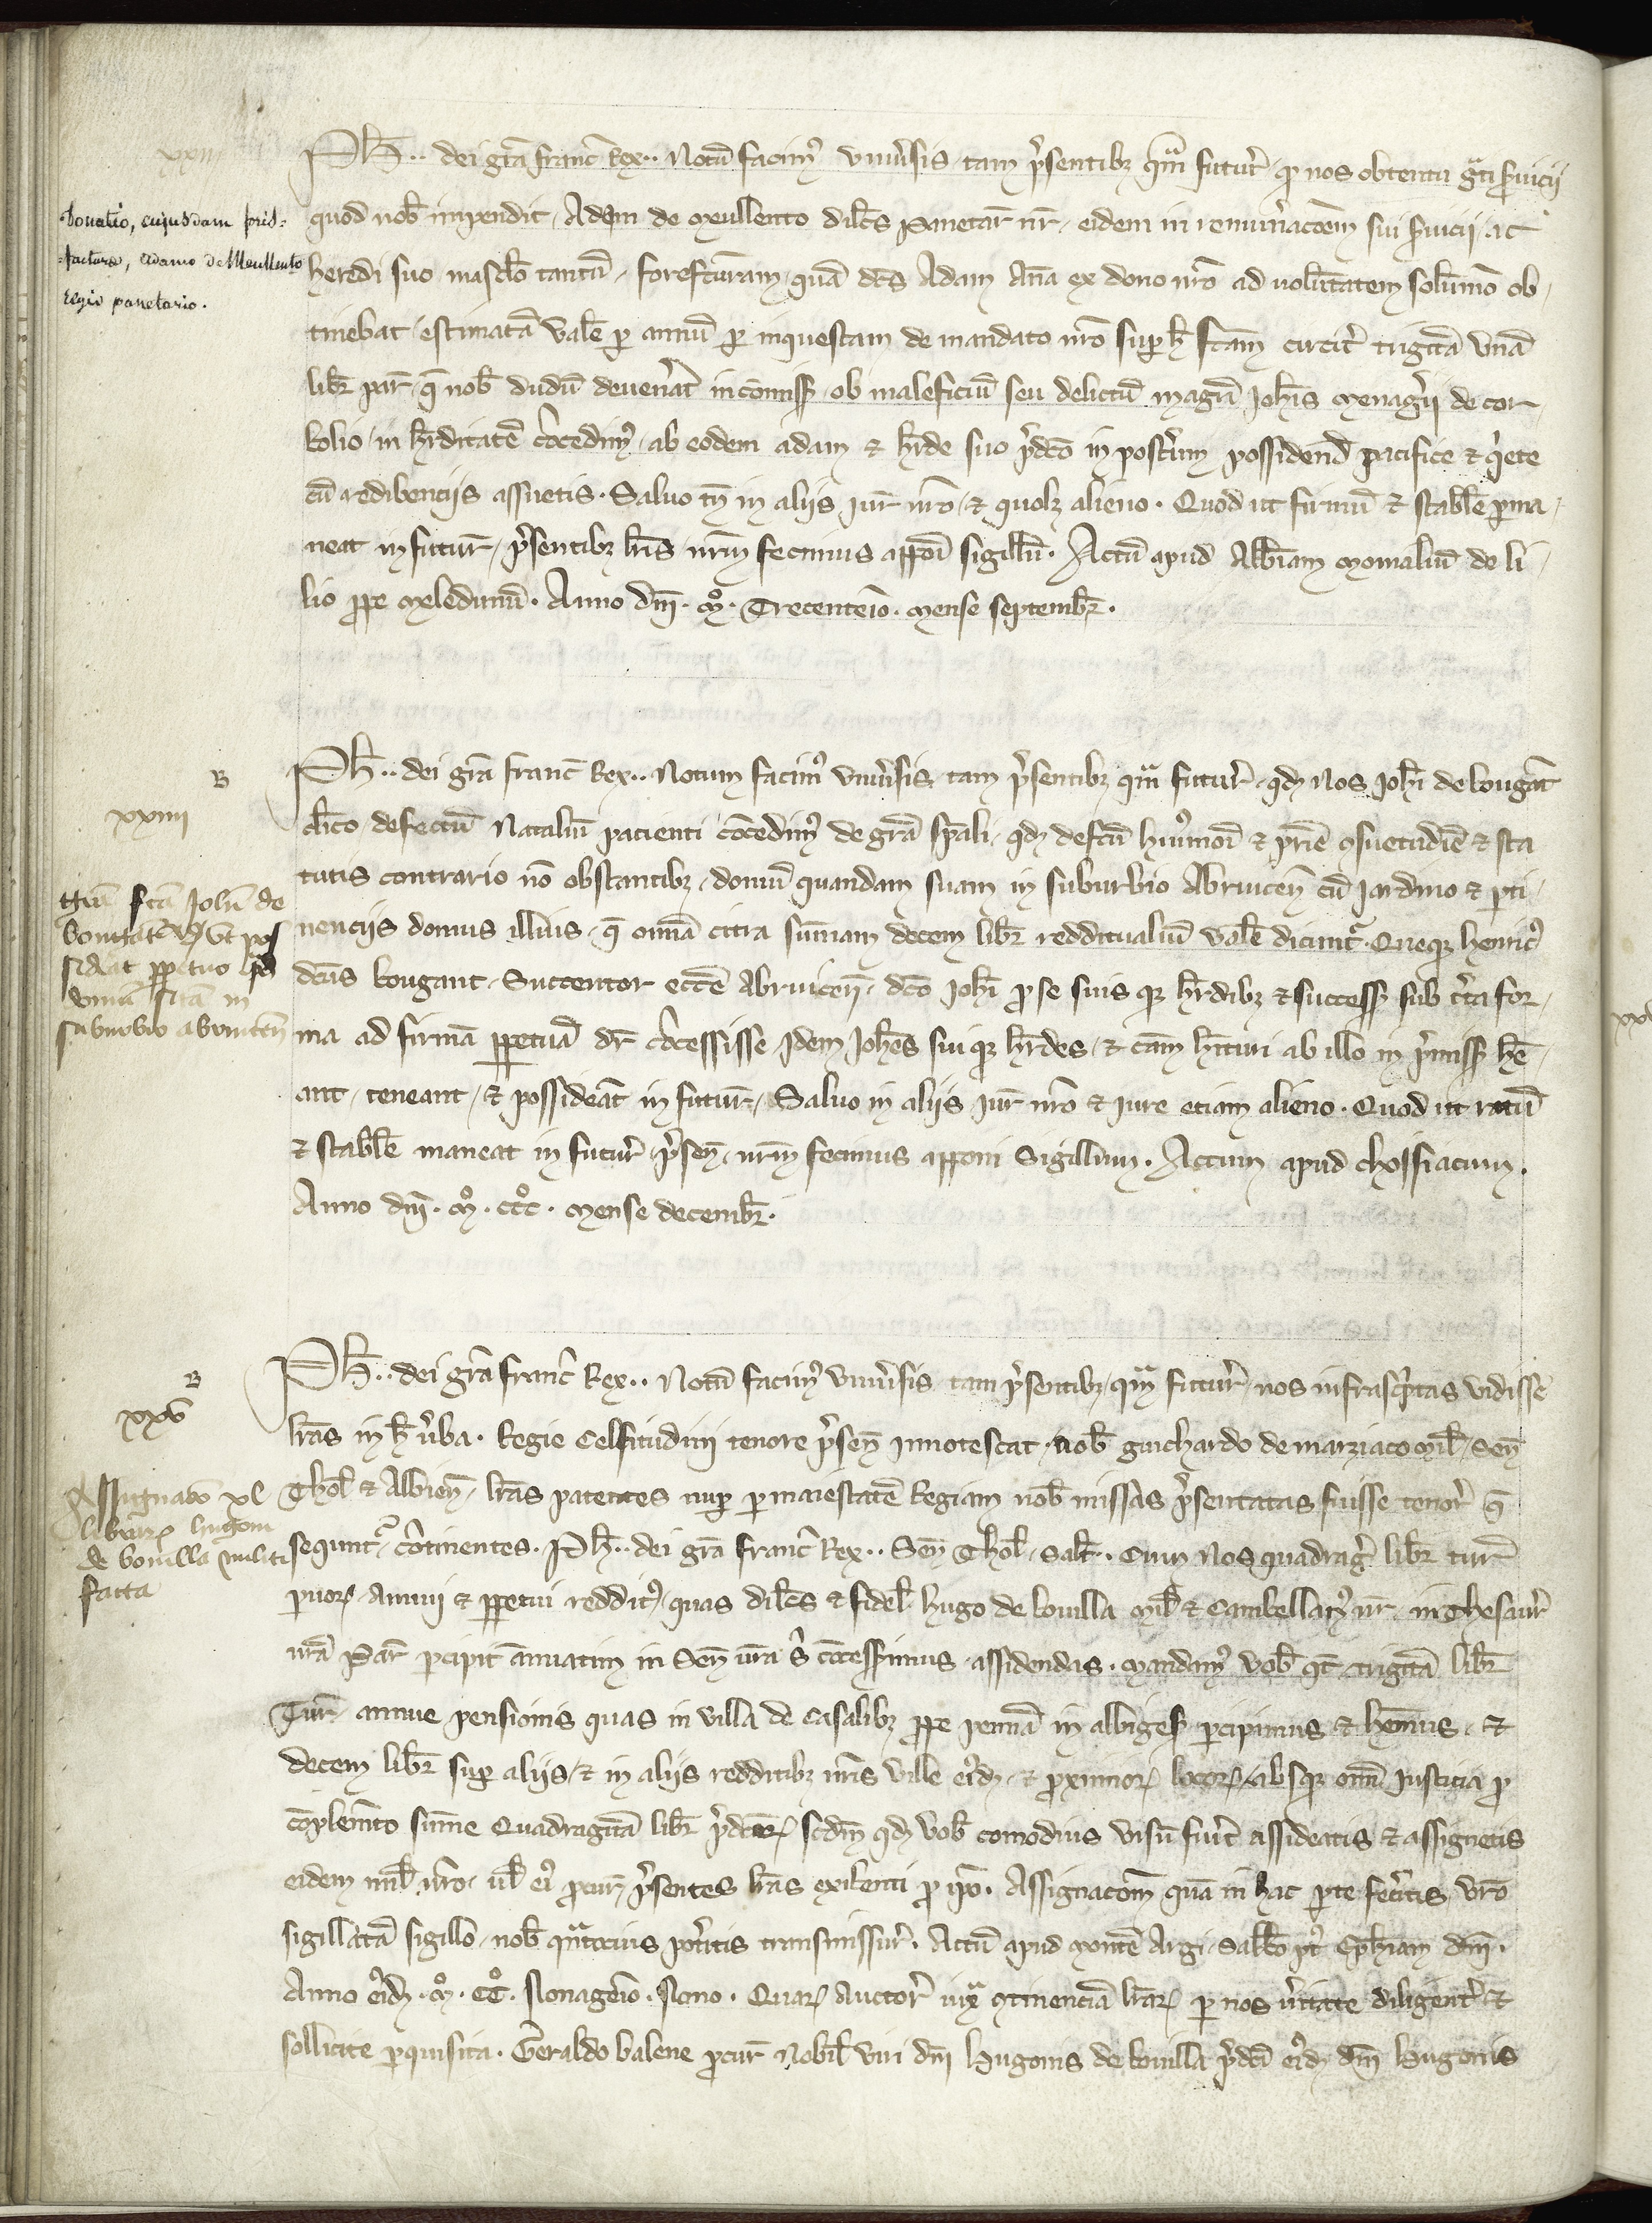 xxiii
Donatio, cujusdam foris-
-facture, adamo de Meullento
regio panetario.
Ph̄.. dei gr̄a franc̄ Rex.. Notū facimꝯ vniu̾sis tam p̾sentibꝫ qͣm futur̾ ꝙ nos obtentu gͣti s̾uicij
quod nob̄ impendit Adam de Meullento dilc̄s Panetar̄ nr̄, eidem in remun̾acōem sui s̾uicij ac
heredi suo masc̄lo tantū, forefc̄uram quā dc̄s Adam An̄a ex dono nr̄o ad volūtatem solūmō ob-
tinebat estimatā vale̾ ꝑ annū ꝑ inquestam de mandato nr̄o suꝑ h̄ fc̄am circit̾ trigīta vnā
libr̄ par̄ q̄ nob̄ dudū deuen̾at in cōmiss̄ ob maleficiū seu delictū mag̾ri Joh̄is Menag̾ij de cor-
bolio, in h̾editatē cōcedimꝯ, ab eodem adam ⁊ h̾ede suo p̾dc̄o in post̾um possidend̄ pacifice ⁊ q̾ete
cū redibencijs assuetis. Saluo tn̄ in alijs iur̄ nr̄o, ⁊ quolꝫ alieno. Quod ut firmū ⁊ stabile ꝑma-
neat in futur̄, p̾sentibꝫ lr̄is nr̄m fecimus appōi sigillū. Actū apud Abb̄iam Monialiū de li-
lio ꝓpe Meledunū. Anno dn̄i. Mͦ. Trecentes̄io. Mense Septembr̄.
B
xxiiii
Gr̄a fc̄a Joh̄i de
bougāt ꝙ vt pos
sideat ꝑpetuo
domū sitā in
suburbio abrincen̄
Ph̄.. dei gr̄a franc̄ Rex.. Notum facimꝯ vniu̾sis tam p̾sentibꝫ qͣm futur̾ qđ Nos Joh̄i de bougāt
cl̄ico defectū Nataliū pacienti cōcedimꝯ de gr̄a sp̄ali, qđ defc̄u hui̾moi ⁊ pr̄ie ꝯsuetudie̾ ⁊ sta
tutis contrario nō obstantibꝫ, domū quandam suam in suburbio Abrincen̄ cū Jardino ⁊ ꝑti-
nencijs domus illius, q̄ oīa citra sūmam decem libr̄ redditualiū vale̾ dicunt̾. Queqꝫ henricꝯ
dc̄us bougant Succentor eccl̄ie Abrincen̄, dc̄o Joh̄i ꝓ se suis qꝫ h̾edibꝫ ⁊ success̄ sub c̾ta for-
ma ad firmā ꝑpetuā dr̄ cōcessisse, Idem Joh̄es sui qꝫ h̾edes, ⁊ cām h̄ituri ab illo in p̾miss̄ he̾-
ant, teneant, ⁊ possideāt in futur̄, Saluo in alijs iur̄ nr̄o ⁊ iure etiam alieno. Quod ut ratū
⁊ stabile maneat in futur̾, p̾sen̄, nr̄m fecimus apponi Sigillum. Actum apud choissiacum.
Anno dn̄i. Mͦ. cccͦ. Mense decembr̄.
B
xxv
Assignacio xl
librar̄ hugoni
de bouilla militi
facta
Ph̄.. dei gr̄a franc̄ Rex.. Notū facimꝯ vniu̾sis tam p̾sentibꝫ, qͣm futur̾, nos infrasc̾ptas vidisse
lr̄as in h̄ u̾ba. Regie Celsitudini tenore p̾sen̄ innotescat, nob̄ guichardo de marziaco mil̄, Sen̄
Thol̄ ⁊ Albien̄, lr̄as patentes nuꝑ ꝑ maiestatē Regiam nob̄ missas p̾sentatas fuisse tenor̾ q̄
sequnt̾, cōtinentes. Ph̄.. dei gr̄a franc̄ Rex.. Sen̄ Thol̄, salt̄.. Cum Nos quadrag̾ libr̄ tur̄
ꝑuoꝝ annui ⁊ ꝑpetui redditꝯ, quas dilc̄s ⁊ fidel̄ hugo de bouilla mil̄ ⁊ Cambellanꝯ nr̄, in Thesaur̾
nr̄o Par̄ ꝑcipit ānuatim in Sen̄ vr̄a s̾ cōcessimus assidendas. Mandamꝯ vob̄ qt̄ trigīta libr̄
Tur̄ annue pensionis quas in villa de Casalibꝫ ꝓpe pennā in albiges̄ ꝑcipimus ⁊ he̾mus, ⁊
decem libr̄ suꝑ alijs, ⁊ in alijs redditibꝫ nr̄is ville ei̾dē, ⁊ ꝓximioꝝ locoꝝ, absqꝫ om̄i Justicia ꝓ
cōplemēto sūme Quadraginta libr̄ p̾dc̄aꝝ sc̄dm qđ vob̄ comodius visū fuit̾ assideatis ⁊ assignetis
eidem mil̄ nr̄o, ul̄ ei̾ ꝓcur̄, p̾sentes lr̄as exibenti ꝓ ip̄o. Assignacōm quā in hac ꝑte fec̾itis, vr̄o
sigillatā sigillo nob̄ qͣntocius pot̾itis transmissur̾. Actū apud Montē Argi, Sabb̄o pt̾ Eph̄iam dn̄i.
Anno ei̾dē. Mͦ. ccͦ. Nonages̄io. Nono. Quaꝝ auctor̾ iuxͣ ꝯtinenciā lr̄aꝝ ꝑ nos v̾itate diligent̾ ⁊
sollicite ꝑquisita. Geraldo balene ꝓcur̄ Nobil̄ viri dn̄i Hugonis de bouilla p̾dc̄i ei̾dē dn̄i Hugonis